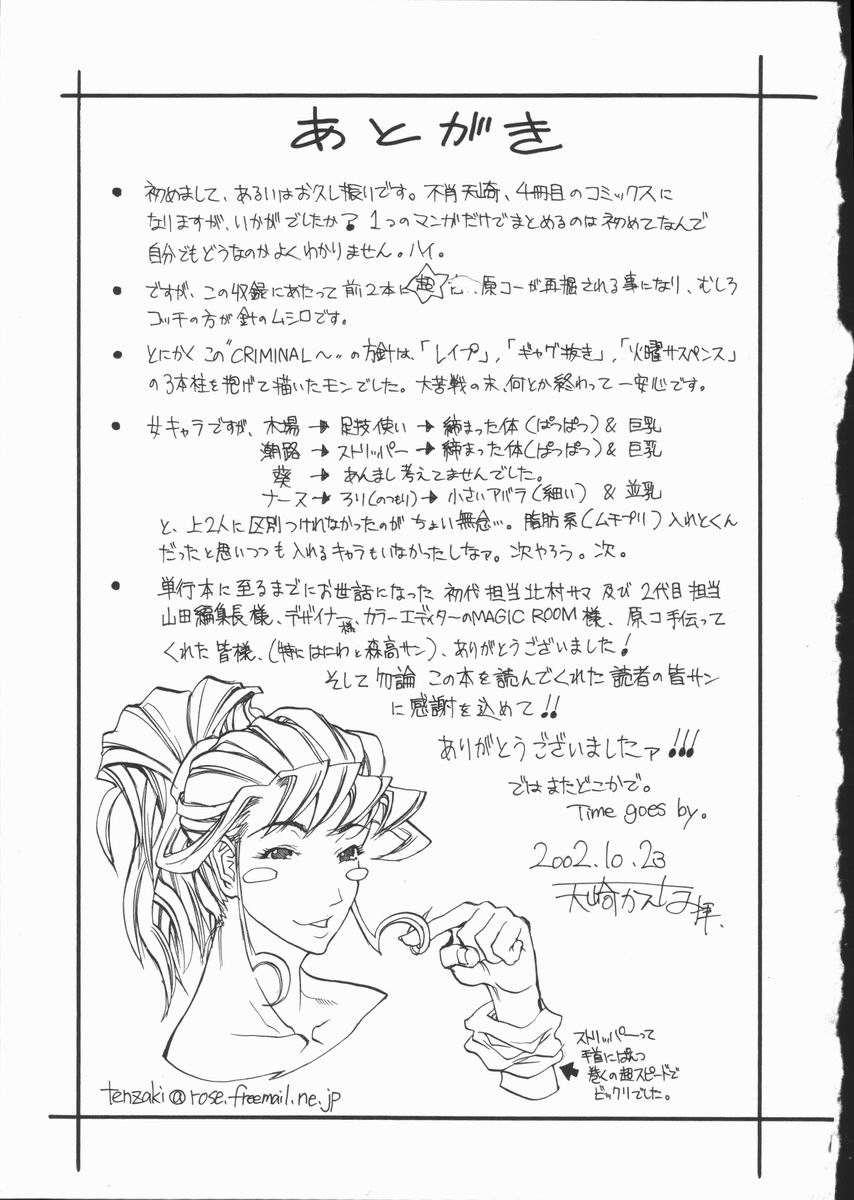 あとがき
● 初めまして、あるいはお久し振りです。不肖天崎、4冊目のコミックスに
なりますが、いかがでしたか？1つのマンガだけでまとめるのは初めてなんで
自分でもどうなのかよくわかりません。ハイ。
● ですが、この収録にあたって前2本に超 、原コーが再掘される事になり、むしろ
コッチの方が針のムシロです。
● とにかくこの"CRIMINAL〜"の方針は、「レイプ」,「ギャグ抜き」,「火曜サスペンス」
の3本柱を掲げて描いたモンでした。大苦戦の末、何とか終わって一安心です。
● 女キャラですが、木場→足技使い→締まった体(ぱっぱつ)&巨乳
潮路→ストリッパー→締まった体(ぱっぱつ)&巨乳
葵→あんまし考えてませんでした。
ナース→ろり(のつもり)→小さいアバラ(細い)&並乳
と、上2人に区別つけれなかったのがちょい無念…。脂肪系(ムチプリ)入れとくん
だったと思いつつも入れるキャラもいなかったしなァ。次やろう。次。
● 単行本に至るまでにお世話になった初代担当北村サマ及び2代目担当
山田編集長様、デザイナー様、カラーエディターのMAGIC ROOM様、原コ手伝って
くれた皆様、(特にはにわと森高サン)、ありがとうございました!
そして勿論この本を読んでくれた読者の皆サン
に感謝を込めて!!
ありがとうございましたァ!!!
ではまたどこかで。
Time goes by.
2002.10.23
天崎かんな拝.
ストリッパーって
手首にぱんつ
巻くの超スピードで
ビックリでした。
tenzaki@rose.freemail.ne.jp